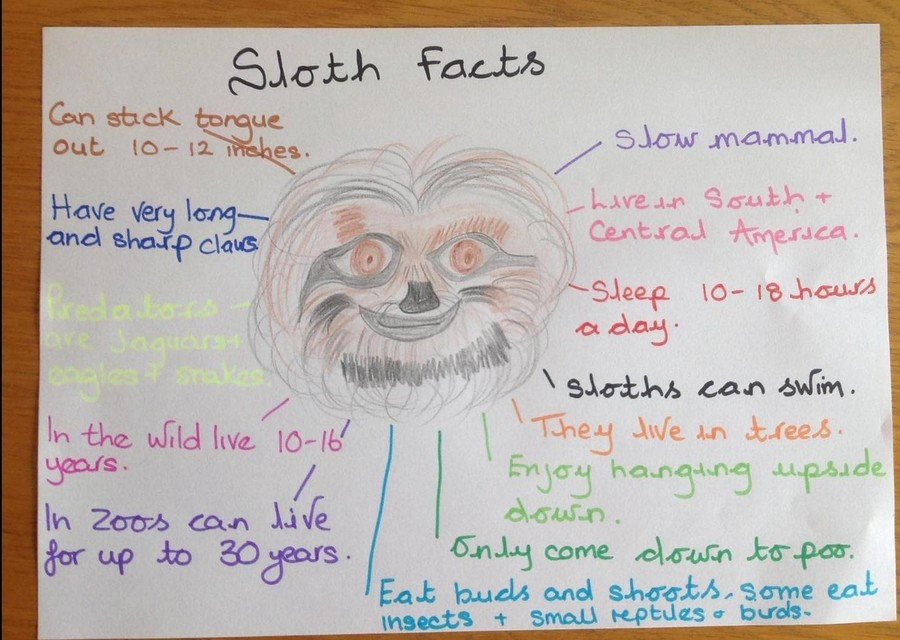 Sloth Facts
Can stick tongue
out 10-12 inches.
Have very long
and sharp claws
Predators
are Jaguars +
eagles + snakes.
In the wild live 10-16
years.
In zoos can live
for up to 30 years.
Slow mammal.
Live in South +
Central America.
Sleep 10-18 hours
a day.
Sloths can swim.
They live in trees.
Enjoy hanging upside
down.
Only come down to poo.
Eat buds and shoots. Some eat
insects + small reptiles + birds.